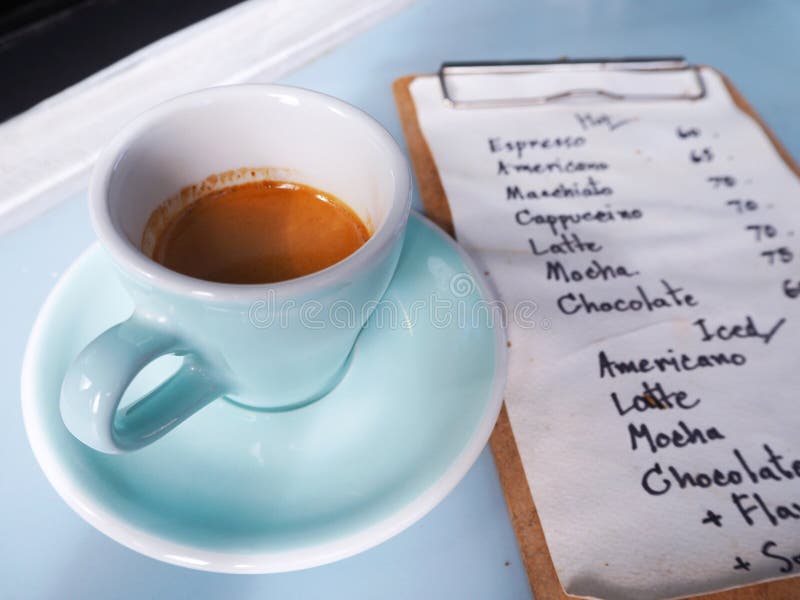 Hot
Espresso 60
Americano 65
Macchiato 70
Cappuccino 70
Latte 70
Mocha 75
Chocolate
Iced
Americano
Latte
Mocha
Chocolate
+
+
dreamstime